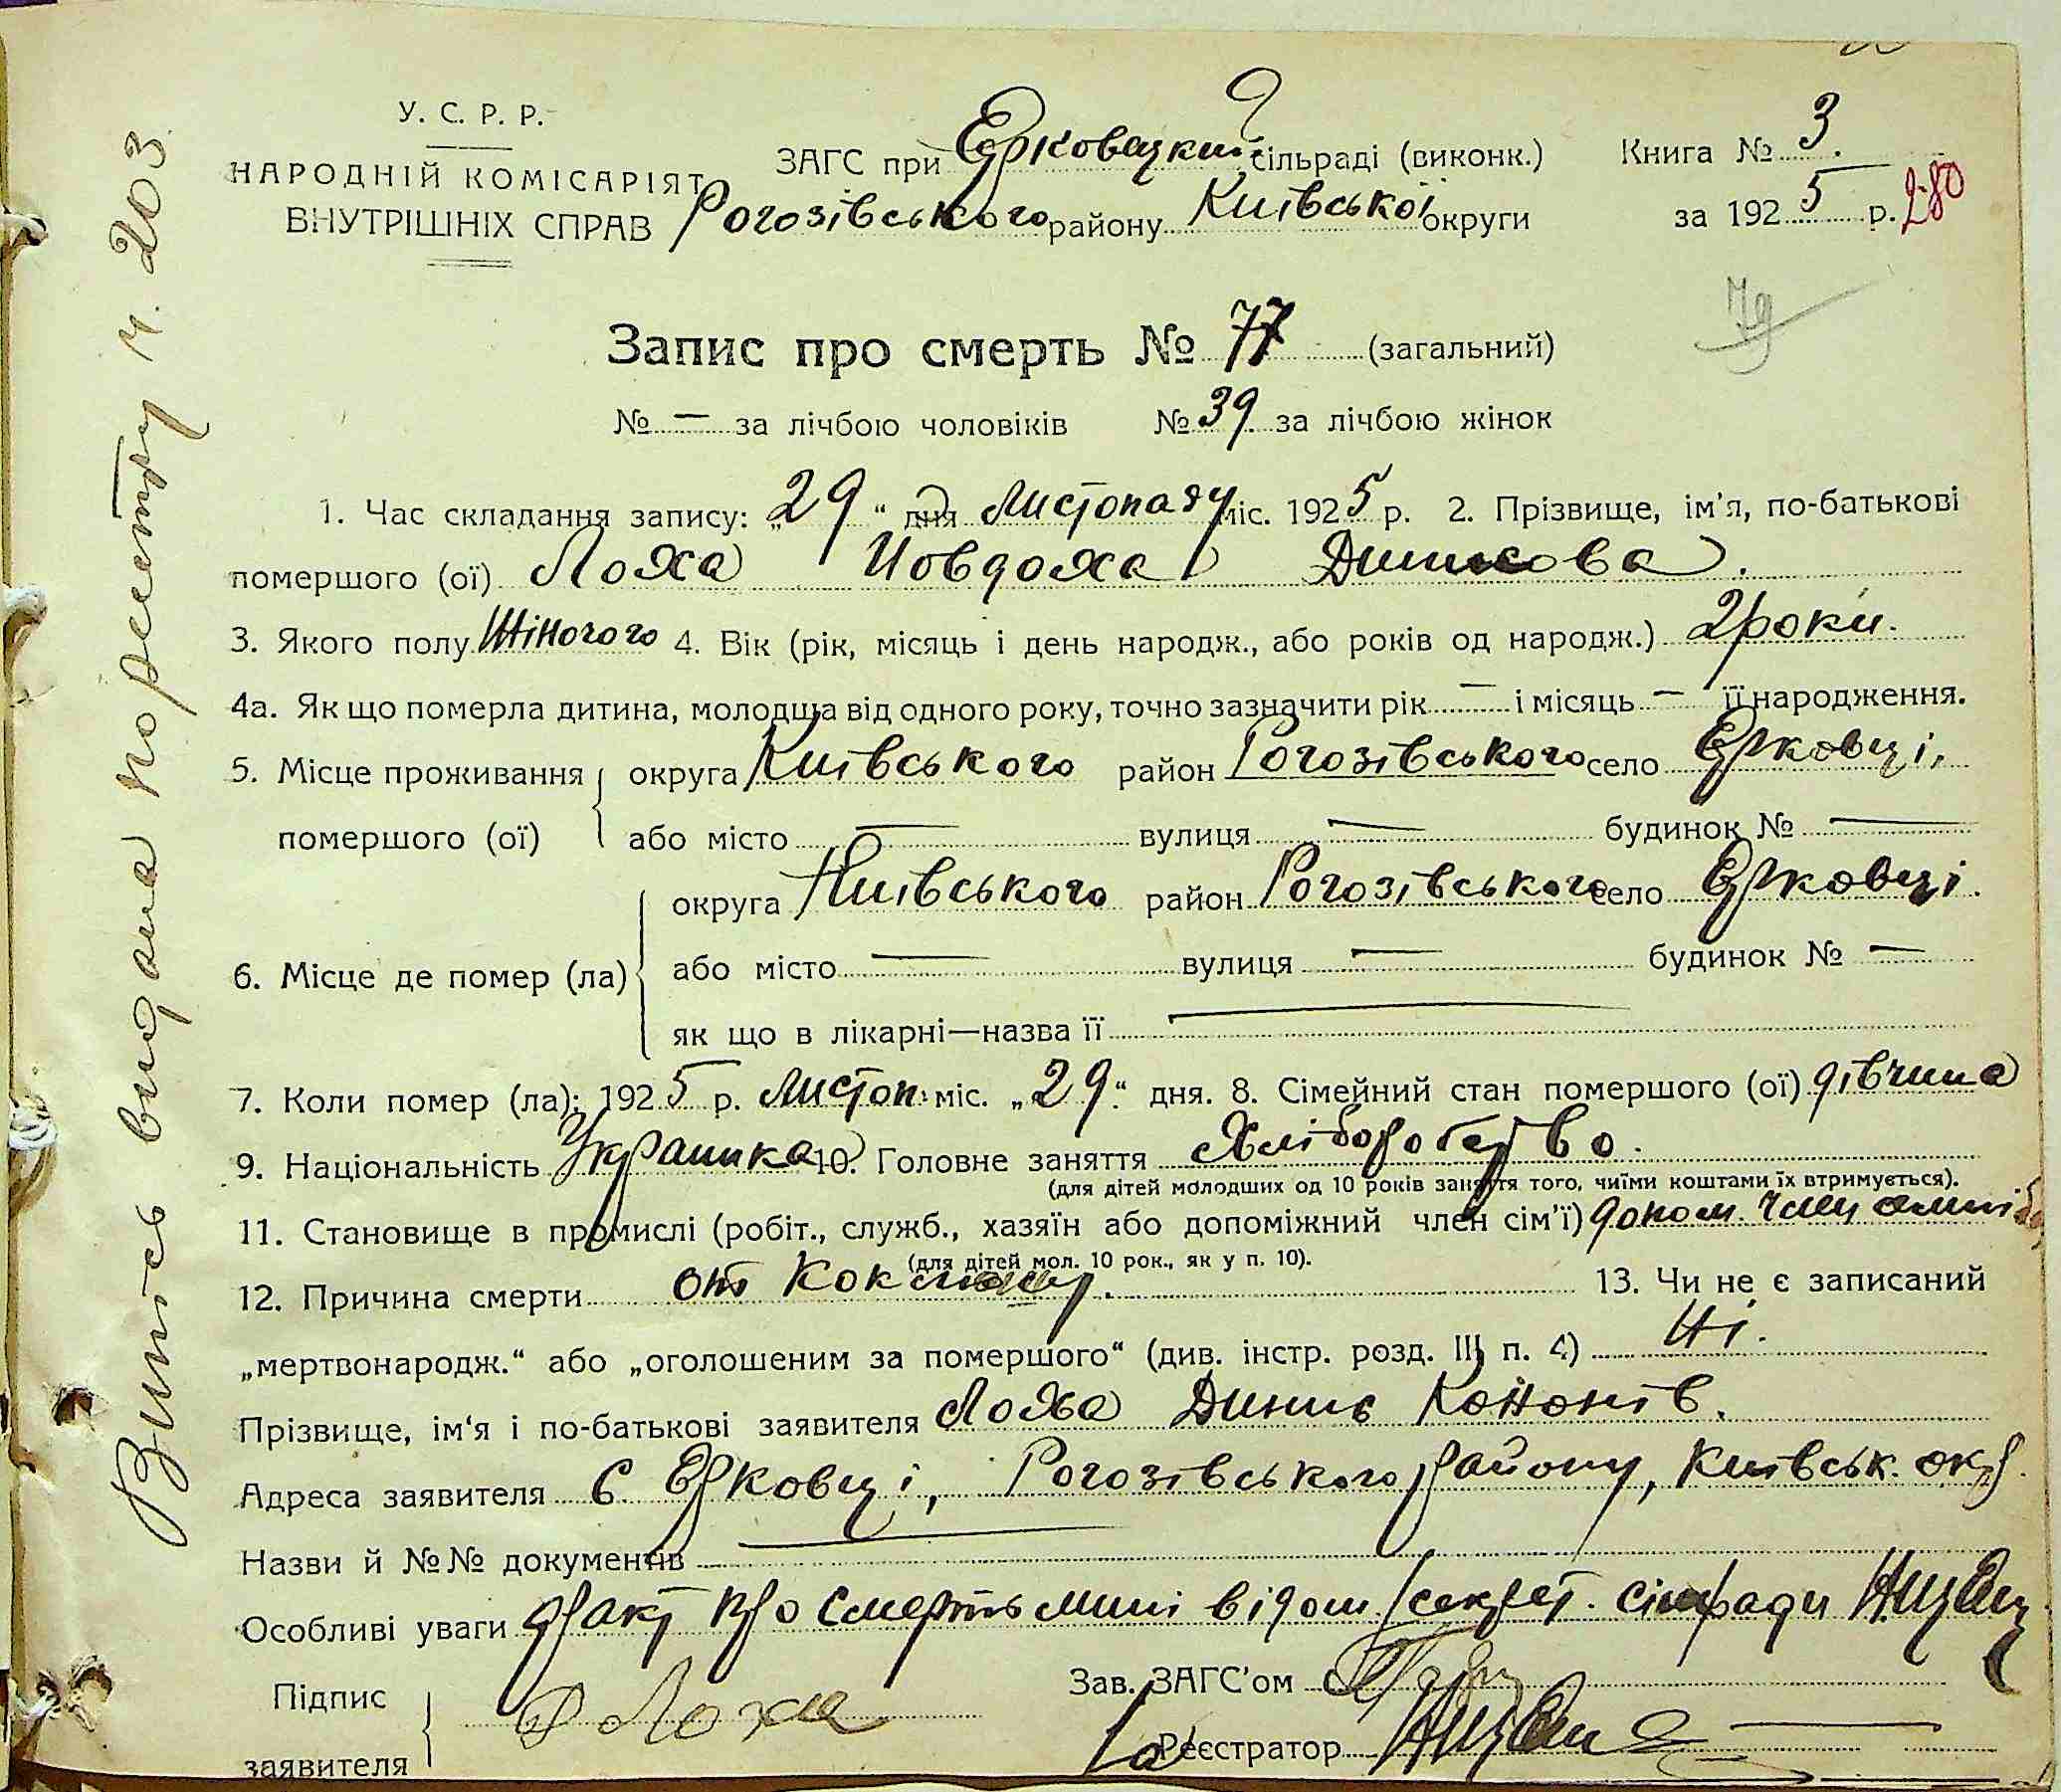 У. С. Р. Р.
НАРОДНІЙ КОМІСАРІЯТ
ВНУТРІШНІХ СПРАВ
ЗАГС при Ерковецкий сільраді (виконк.)
Рогозівського району Київської округи
Книга № 3.
за 1925 р. 280
79
Запис про смерть № 77 (загальний)
№ — за лічбою чоловіків № 39 за лічбою жінок
1. Час складання запису: „29“ дня Листопаду міс. 1925 р. 2. Прізвище, ім'я, по-батькові
помершого (ої) Лоха Иовдоха Динисова.
3. Якого полу Жіночого 4. Вік (рік, місяць і день народж., або років од народж.) 2 роки.
4а. Як що померла дитина, молодша від одного року, точно зазначити рік — і місяць — її народження.
5. Місце проживання помершого (ої) округа Київського район Рогозівського село Ерковці,
або місто — вулиця — будинок № —
6. Місце де помер (ла) округа Київського район Рогозівського село Ерковці.
або місто — вулиця — будинок № —
як що в лікарні—назва її —
7. Коли помер (ла): 1925 р. Листоп. міс. „29“ дня. 8. Сімейний стан помершого (ої) дівчина
9. Національність Украинка 10. Головне заняття Хліборобство.
(для дітей молодших од 10 років заняття того, чиїми коштами їх втримується).
11. Становище в промислі (робіт., служб., хазяїн або допоміжний член сім'ї) допом. член
(для дітей мол. 10 рок., як у п. 10).
12. Причина смерти от Коклюшу. 13. Чи не є записаний
„мертвонародж.“ або „оголошеним за помершого“ (див. інстр. розд. III п. 4) Ні.
Прізвище, ім'я і по-батькові заявителя Лоха Динис Кононів.
Адреса заявителя с Ерковці, Рогозівського району, Київськ. окр.
Назви й №№ документів —
Особливі уваги факт про смерть мині відом. секрет. сільради
Підпис
заявителя Д Лоха
Зав. ЗАГС'ом
Реєстратор
Витяг видана по реєстру ч. 203.